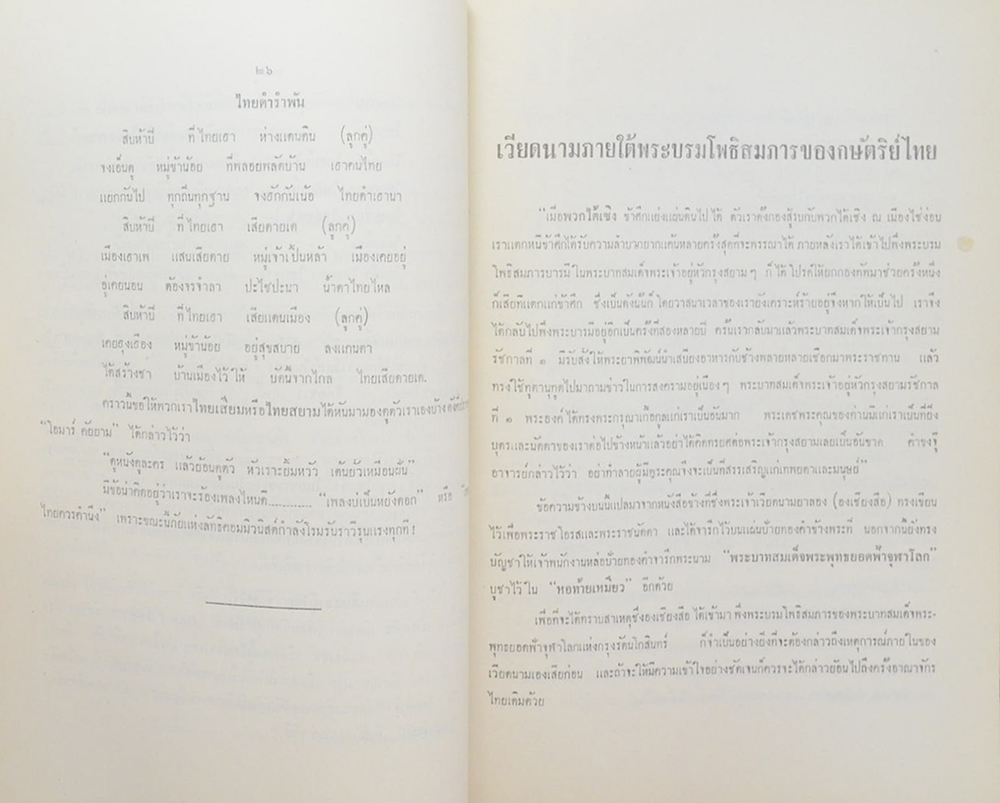 ๒๖
ไทยดำรำพัน
สิบห้าปี ที่ไทยเฮา ห่างแดนดิน (ลูกคู่)
จงเอ็นดู หมู่ข้าน้อย ที่พลอยพลัดบ้าน เฮาคนไทย
แยกกันไป ทุกถิ่นทุกฐาน จงฮักกันเน้อ ไทยดำเฮานา
สิบห้าปี ที่ไทยเฮา เสียดายเด (ลูกคู่)
เมืองเฮาเพ แสนเสียดาย หมู่เจ้าเป็นหล้า เมืองเคยอยู่
อู่เคยนอน ต้องจรจำลา ปะไชปะนา น้ำตาไทยไหล
สิบห้าปี ที่ไทยเฮา เสียแดนเมือง (ลูกคู่)
เคยฮุงเฮือง หมู่ข้าน้อย อยู่สุขสบาย ลงแกนดา
ได้สร้างชา บ้านเมืองไว้ให้ บัดนี้จากไกล ไทยเสียดายเด.
คราวนี้ขอให้พวกเราไทยเสียมหรือไทยสยามได้หันมามองดูตัวเราเองบ้าง
"ไอมาร์ คัยยาม" ได้กล่าวไว้ว่า
"ดูหนังดูละคร แล้วย้อนดูตัว หัวเราะยิ้มหวัว เต้นยั่วเหมือนฝัน"
มีข้อน่าคิดอยู่ว่าเราจะร้องเพลงไหนดี............ "เพลงบ่เป็นหยังดอก" หรือ
ไทยควรคำนึง" เพราะขณะนี้ภัยแห่งลัทธิคอมมิวนิสต์กำลังโรมรันราวีรุนแรงทุกที !
เวียดนามภายใต้พระบรมโพธิสมภารของกษัตริย์ไทย
"เมื่อพวกไต้เชิง ข้าศึกแย่งแผ่นดินไปได้ ตัวเราตั้งกองสู้รบกับพวกไต้เชิง ณ เมืองไซ่ง่อน
เราแตกหนีข้าศึกได้รับความลำบากยากแค้นหลายครั้งสุดที่จะพรรณาได้ ภายหลังเราได้เข้าไปพึ่งพระบรม
โพธิสมภารบารมี ในพระบาทสมเด็จพระเจ้าอยู่หัวกรุงสยาม ๆ ก็ได้โปรดให้ยกกองทัพมาช่วยครั้งหนึ่ง
ก็เสียทีแตกแก่ข้าศึก ซึ่งเป็นดังนั้นก็โดยวาสนาเวลาของเรายังเคราะห์ร้ายอยู่จึงหากให้เป็นไป เราจึง
ได้กลับไปพึ่งพระบารมีอยู่อีกเป็นครั้งที่สองหลายปี ครั้นเรากลับมาแล้วพระบาทสมเด็จพระเจ้ากรุงสยาม
รัชกาลที่ ๑ มีรับสั่งให้พระยาพิพัฒน์นำเสบียงอาหารกับช้างพลายหลายเชือกมาพระราชทาน แล้ว
ทรงใช้ทูตานุทูตไปมาถามข่าวในการสงครามอยู่เนือง ๆ พระบาทสมเด็จพระเจ้าอยู่หัวกรุงสยามรัชกาล
ที่ ๑ พระองค์ได้ทรงพระกรุณาเกื้อกูลแก่เราเป็นอันมาก พระเดชพระคุณของท่านมีแก่เราเป็นที่ยิ่ง
บุตรและนัดดาของเราต่อไปข้างหน้าแล้วอย่าได้คิดทรยศต่อพระเจ้ากรุงสยามเลยเป็นอันขาด คำขงจู๊
อาจารย์กล่าวไว้ว่า อย่าทำลายผู้มีธุระคุณจึงจะเป็นที่สรรเสริญแก่เทพยดาและมนุษย์"
ข้อความข้างบนนี้แปลมาจากหนังสือจ้างที่ซึ่งพระเจ้าเวียดนามยาลอง (องเชียงสือ) ทรงเขียน
ไว้เพื่อพระราชโอรสและพระราชนัดดา และได้จารึกไว้บนแผ่นป้ายทองคำข้างพระที่ นอกจากนี้ยังทรง
บัญชาให้เจ้าพนักงานหล่อป้ายทองคำจารึกพระนาม "พระบาทสมเด็จพระพุทธยอดฟ้าจุฬาโลก"
บูชาไว้ใน "หอท้ายเหมียว" อีกด้วย
เพื่อที่จะได้ทราบสาเหตุซึ่งองเชียงสือ ได้เข้ามาพึ่งพระบรมโพธิสมภารของพระบาทสมเด็จพระ-
พุทธยอดฟ้าจุฬาโลกแห่งกรุงรัตนโกสินทร์ ก็จำเป็นอย่างยิ่งที่จะต้องกล่าวถึงเหตุการณ์ภายในของ
เวียดนามเองเสียก่อน และถ้าจะให้มีความเข้าใจอย่างชัดเจนก็ควรจะได้กล่าวย้อนไปถึงครั้งอาณาจักร
ไทยเดิมด้วย